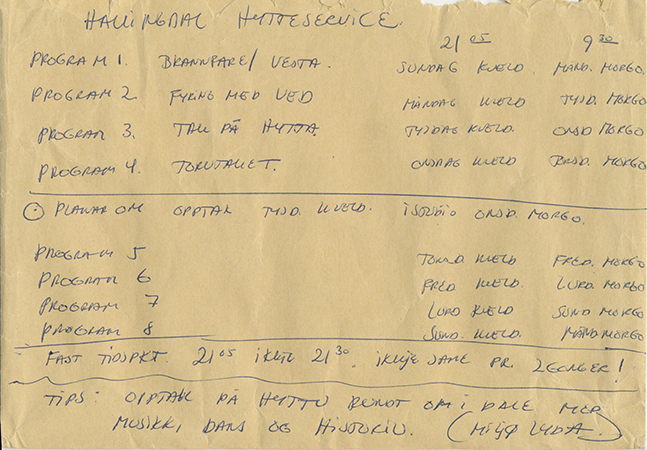 HALLINGDAL HYTTESERVICE.
21 05 9 30
PROGRAM 1. BRANNFARE/ VESTA. SUNDAG KVELD. MÅND. MORGO.
PROGRAM 2. FYRING MED VED MÅNDAG KVELD TYSD. MORGO
PROGRAM 3. TAK PÅ HYTTA. TYSDAG KVELD. ONSD MORGO
PROGRAM 4. TORVTAKET. ONSDAG KVELD TORSD. MORGO
PLANAR OM OPPTAK TYSD. KVELD. I STUDIO ONSD. MORGO.
PROGRAM 5 TORSD. KVELD FRED. MORGO
PROGRAM 6 FRED KVELD. LURD. MORGO
PROGRAM 7 LURD KVELD SUND MORGO
PROGRAM 8 SUND. KVELD. MÅND MORGO
FAST TIDSPKT 21 05 IKKJE 21 30. IKKJE SAME PR. LENGER!
TIPS: OPPTAK PÅ HYTTU RUNDT OM I DALE MED
MUSIKK, DANS OG HISTORIU. (MILJØ LYDA.)